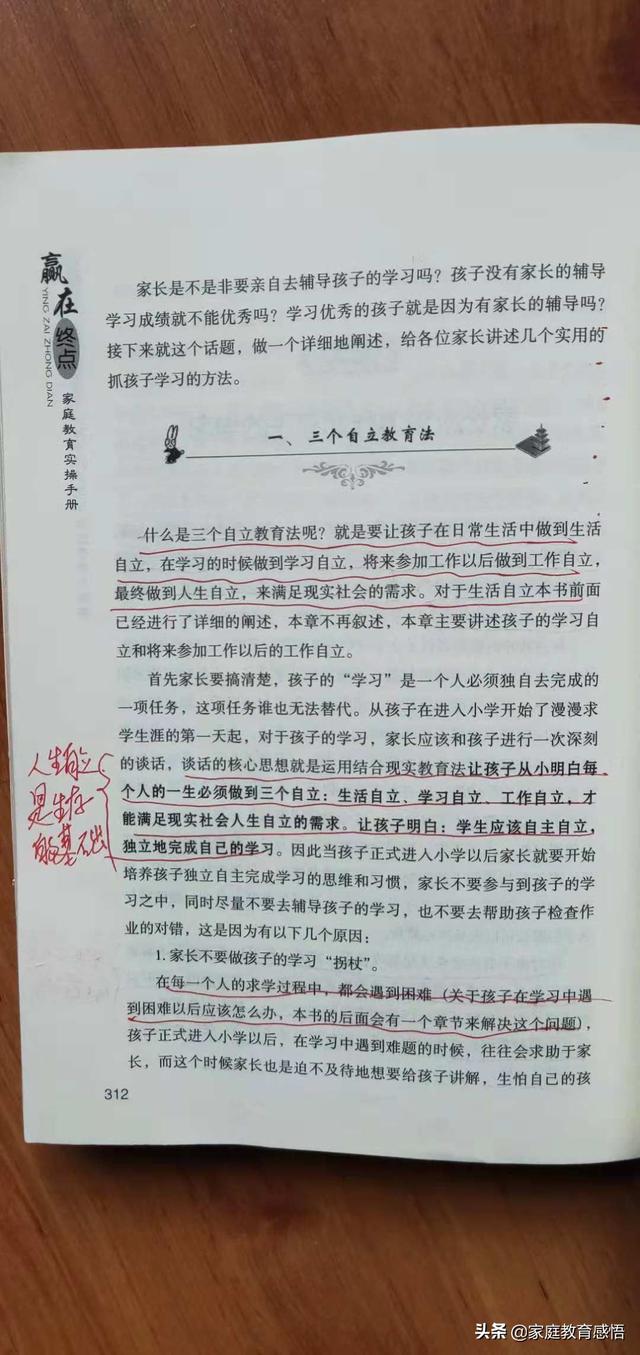 赢在终点
YING ZAI ZHONG DIAN
家庭教育实操手册
家长是不是非要亲自去辅导孩子的学习吗？孩子没有家长的辅导
学习成绩就不能优秀吗？学习优秀的孩子就是因为有家长的辅导吗？
接下来就这个话题，做一个详细地阐述，给各位家长讲述几个实用的
抓孩子学习的方法。
一、三个自立教育法
什么是三个自立教育法呢？就是要让孩子在日常生活中做到生活
自立，在学习的时候做到学习自立，将来参加工作以后做到工作自立，
最终做到人生自立，来满足现实社会的需求。对于生活自立本书前面
已经进行了详细的阐述，本章不再叙述，本章主要讲述孩子的学习自
立和将来参加工作以后的工作自立。
首先家长要搞清楚，孩子的“学习”是一个人必须独自去完成的
一项任务，这项任务谁也无法替代。从孩子在进入小学开始了漫漫求
学生涯的第一天起，对于孩子的学习，家长应该和孩子进行一次深刻
的谈话，谈话的核心思想就是运用结合现实教育法让孩子从小明白每
个人的一生必须做到三个自立：生活自立、学习自立、工作自立，才
能满足现实社会人生自立的需求。让孩子明白：学生应该自主自立，
独立地完成自己的学习。因此当孩子正式进入小学以后家长就要开始
培养孩子独立自主完成学习的思维和习惯，家长不要参与到孩子的学
习之中，同时尽量不要去辅导孩子的学习，也不要去帮助孩子检查作
业的对错，这是因为有以下几个原因：
1. 家长不要做孩子的学习“拐杖”。
在每一个人的求学过程中，都会遇到困难（关于孩子在学习中遇
到困难以后应该怎么办，本书的后面会有一个章节来解决这个问题），
孩子正式进入小学以后，在学习中遇到难题的时候，往往会求助于家
长，而这个时候家长也是迫不及待地想要给孩子讲解，生怕自己的孩
312
人生自立
是生存
的基础
头条 @家庭教育感悟